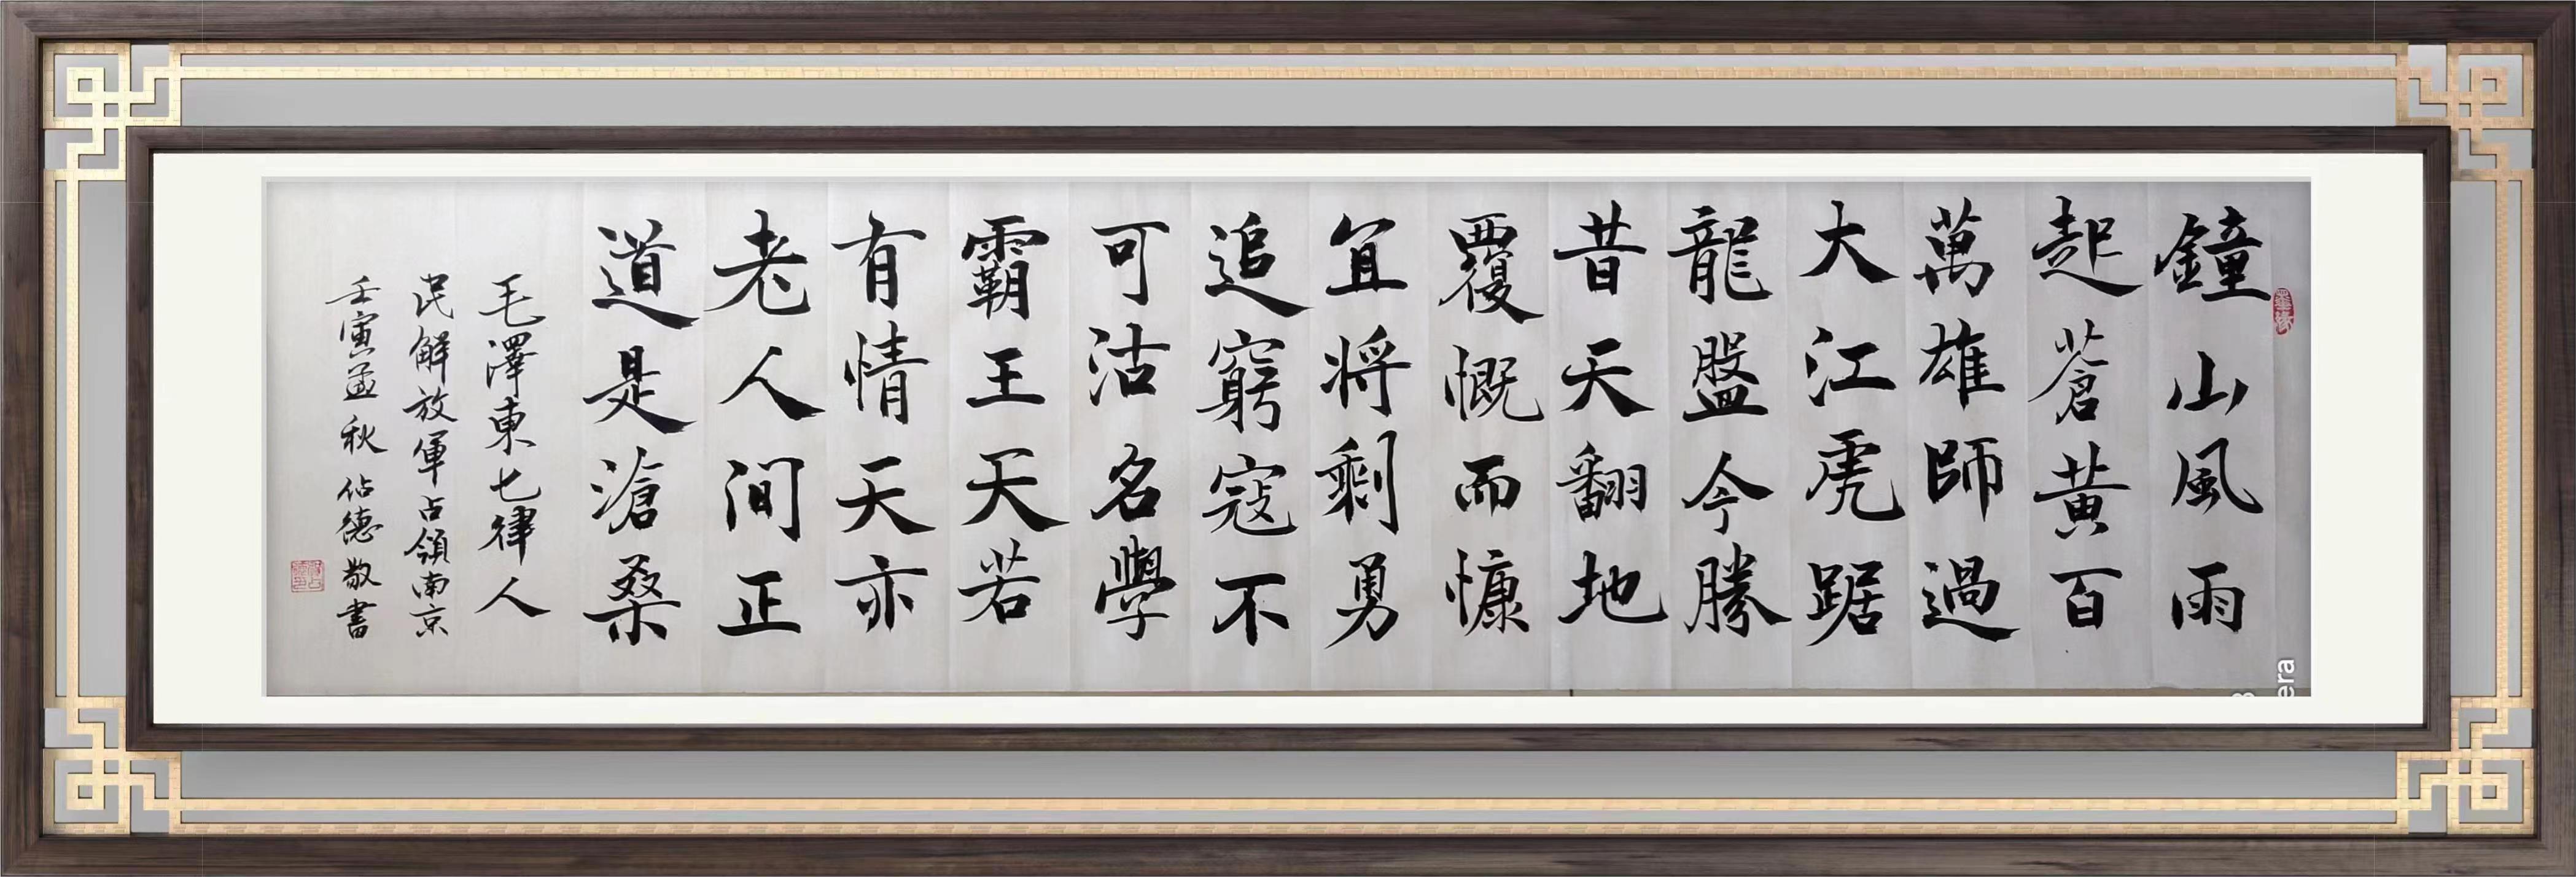 鐘山風雨
起蒼黄百
萬雄師過
大江虎踞
龍盤今勝
昔天翻地
覆慨而慷
宜将剩勇
追窮寇不
可沽名學
霸王天若
有情天亦
老人间正
道是滄桑
毛澤東七律人
民解放軍占領南京
壬寅孟秋佔德敬書
era